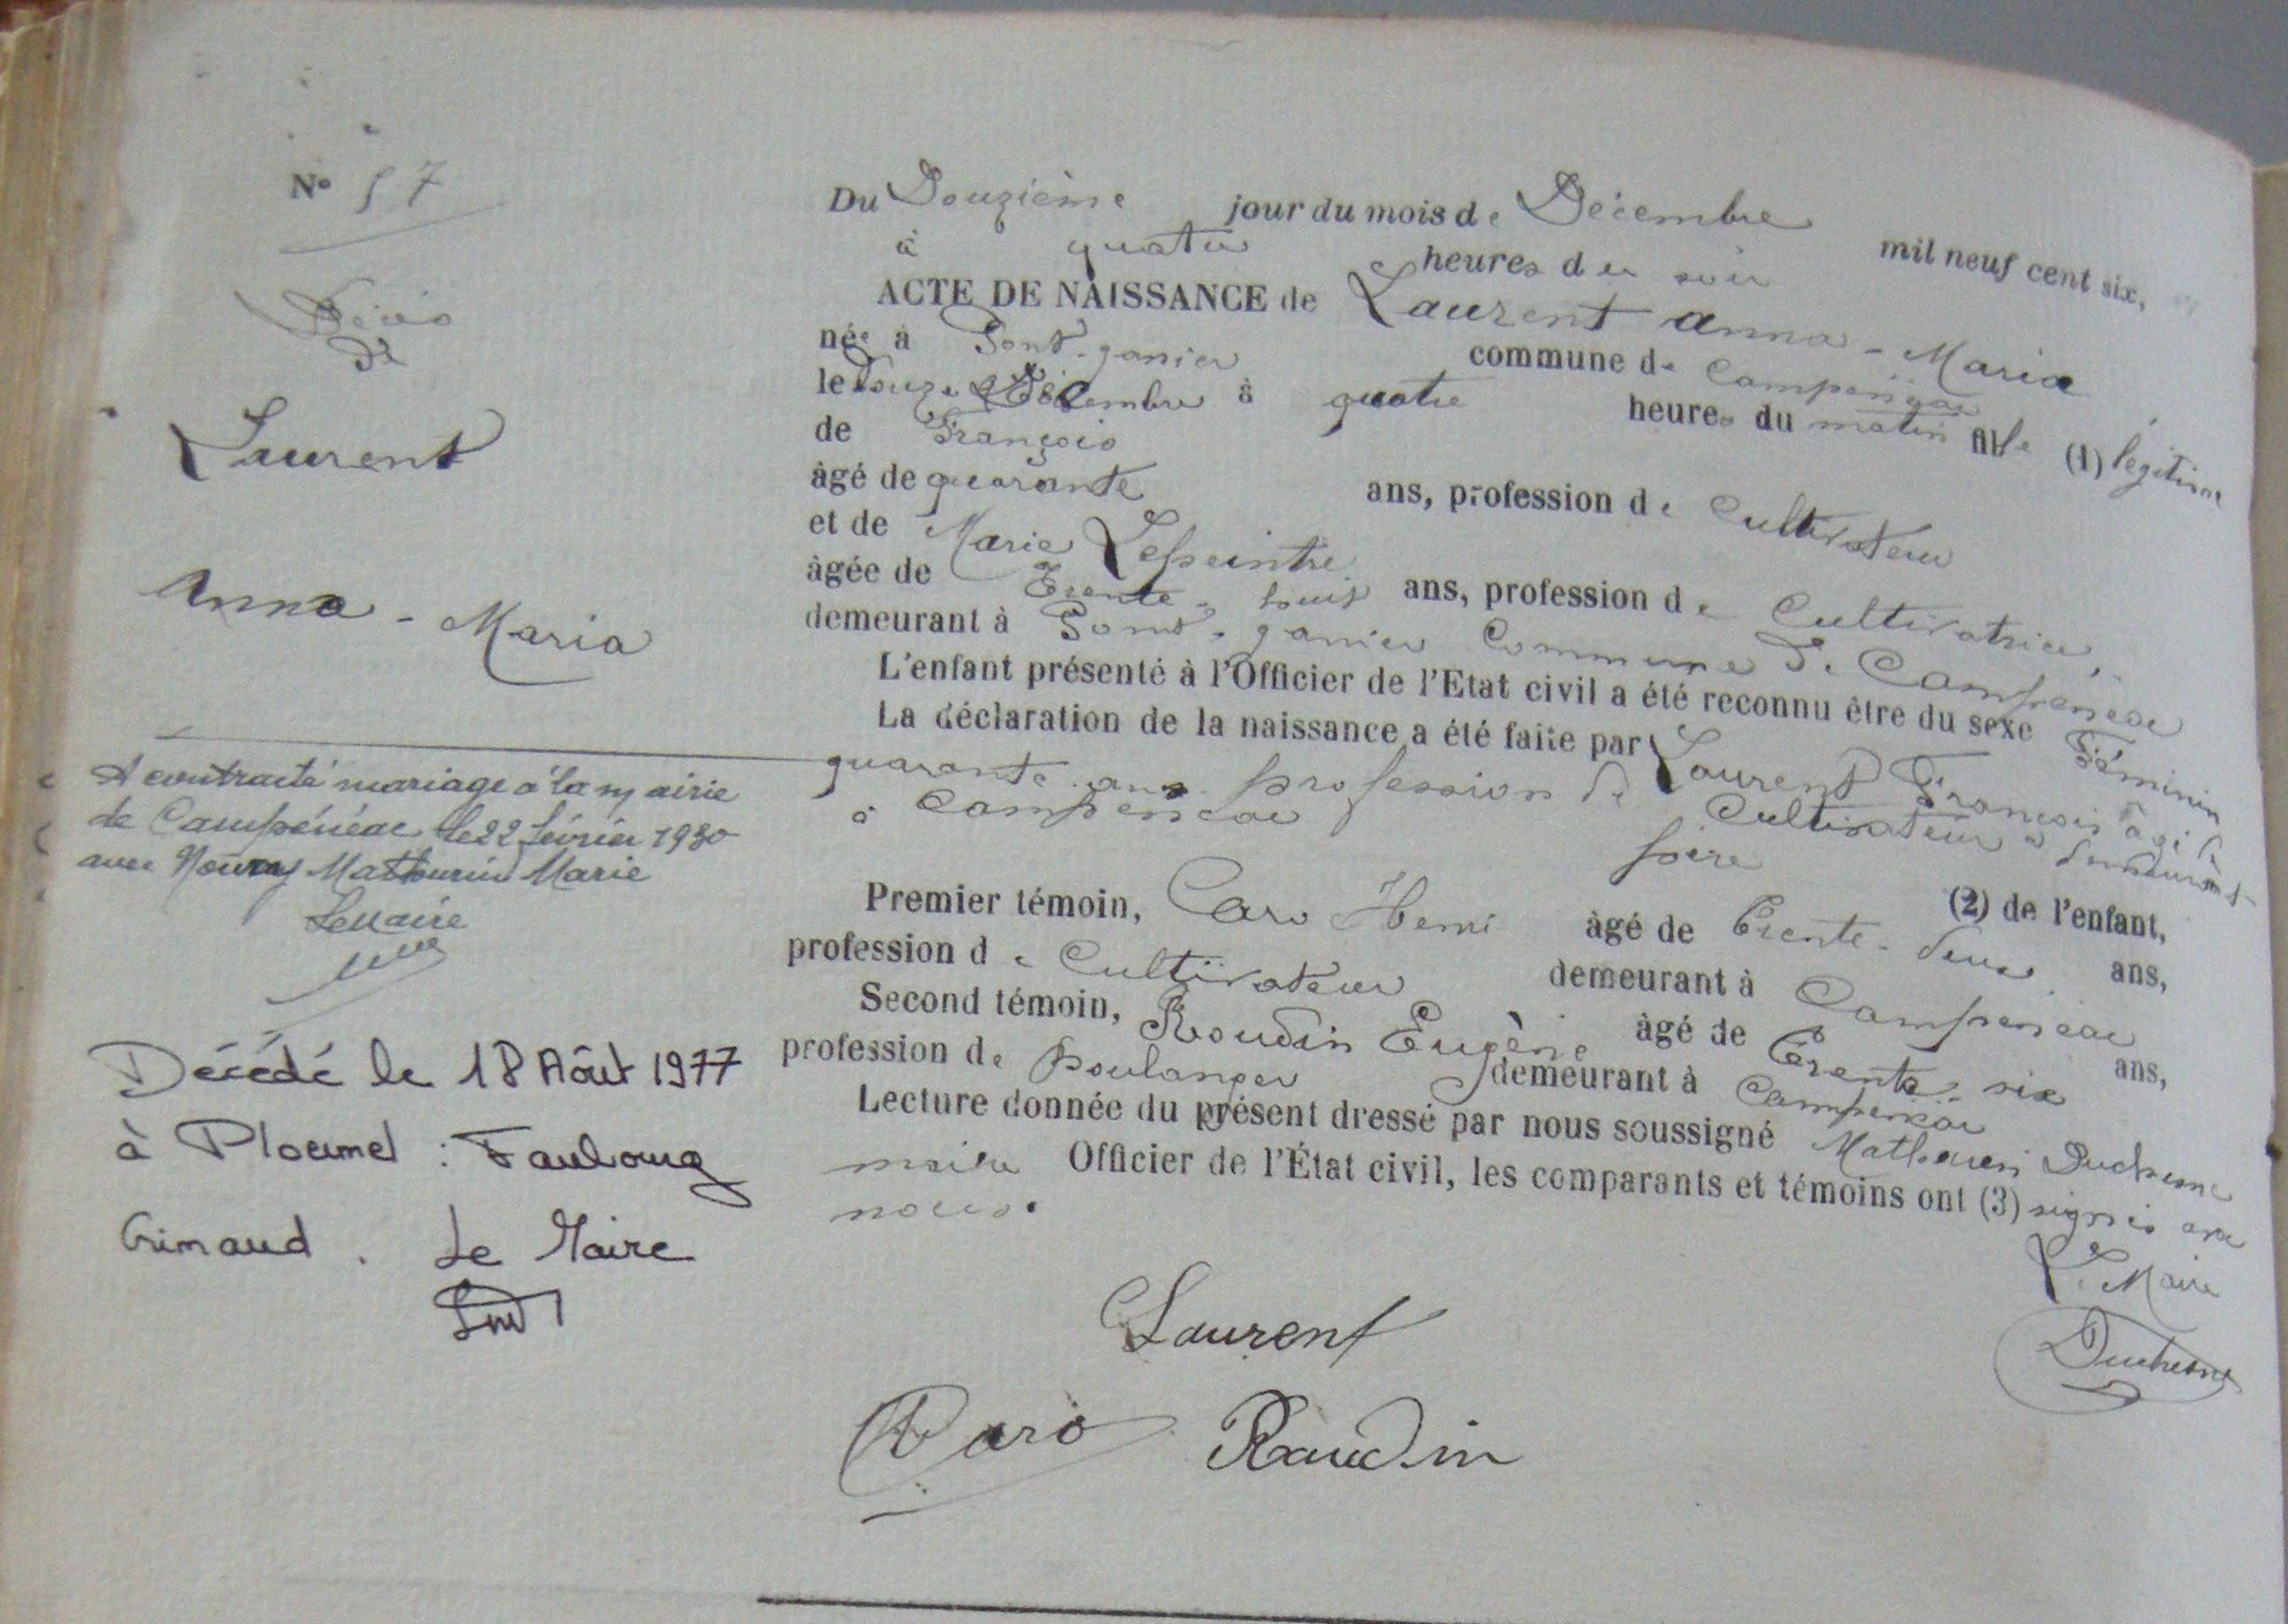 N° 57
Laurent
Anna - Maria
A contracté mariage à la mairie
de Campénéac le 22 février 1930
avec Noury Mathurin Marie
Le Maire
Décédé le 18 Août 1977
à Ploermel : Faubourg
Grimaud. Le Maire
Du Douzième jour du mois de Décembre mil neuf cent six,
à quatre heures du soir
ACTE DE NAISSANCE de Laurent Anna - Maria
née à Pont-ganier commune de Campénéac
le Douze Décembre à quatre heures du matin fille (1) légitime
de François
âgé de quarante ans, profession de Cultivateur
et de Marie Lepeintre
âgée de Trente-huit ans, profession de Cultivatrice,
demeurant à Pont-ganier Commune de Campénéac
L'enfant présenté à l'Officier de l'Etat civil a été reconnu être du sexe Féminin
La déclaration de la naissance a été faite par Laurent François âgé de
quarante ans profession de Cultivateur demeurant
à Campénéac père (2) de l'enfant,
Premier témoin, Caro Henri âgé de Trente-deux ans,
profession de Cultivateur demeurant à Campénéac
Second témoin, Roudin Eugène âgé de Trente-six ans,
profession de Boulanger demeurant à Campénéac
Lecture donnée du présent dressé par nous soussigné Mathurin Duchesne
maire Officier de l'État civil, les comparants et témoins ont (3) signés avec
nous.
Le Maire
Laurent
Duchesne
Caro Raudin